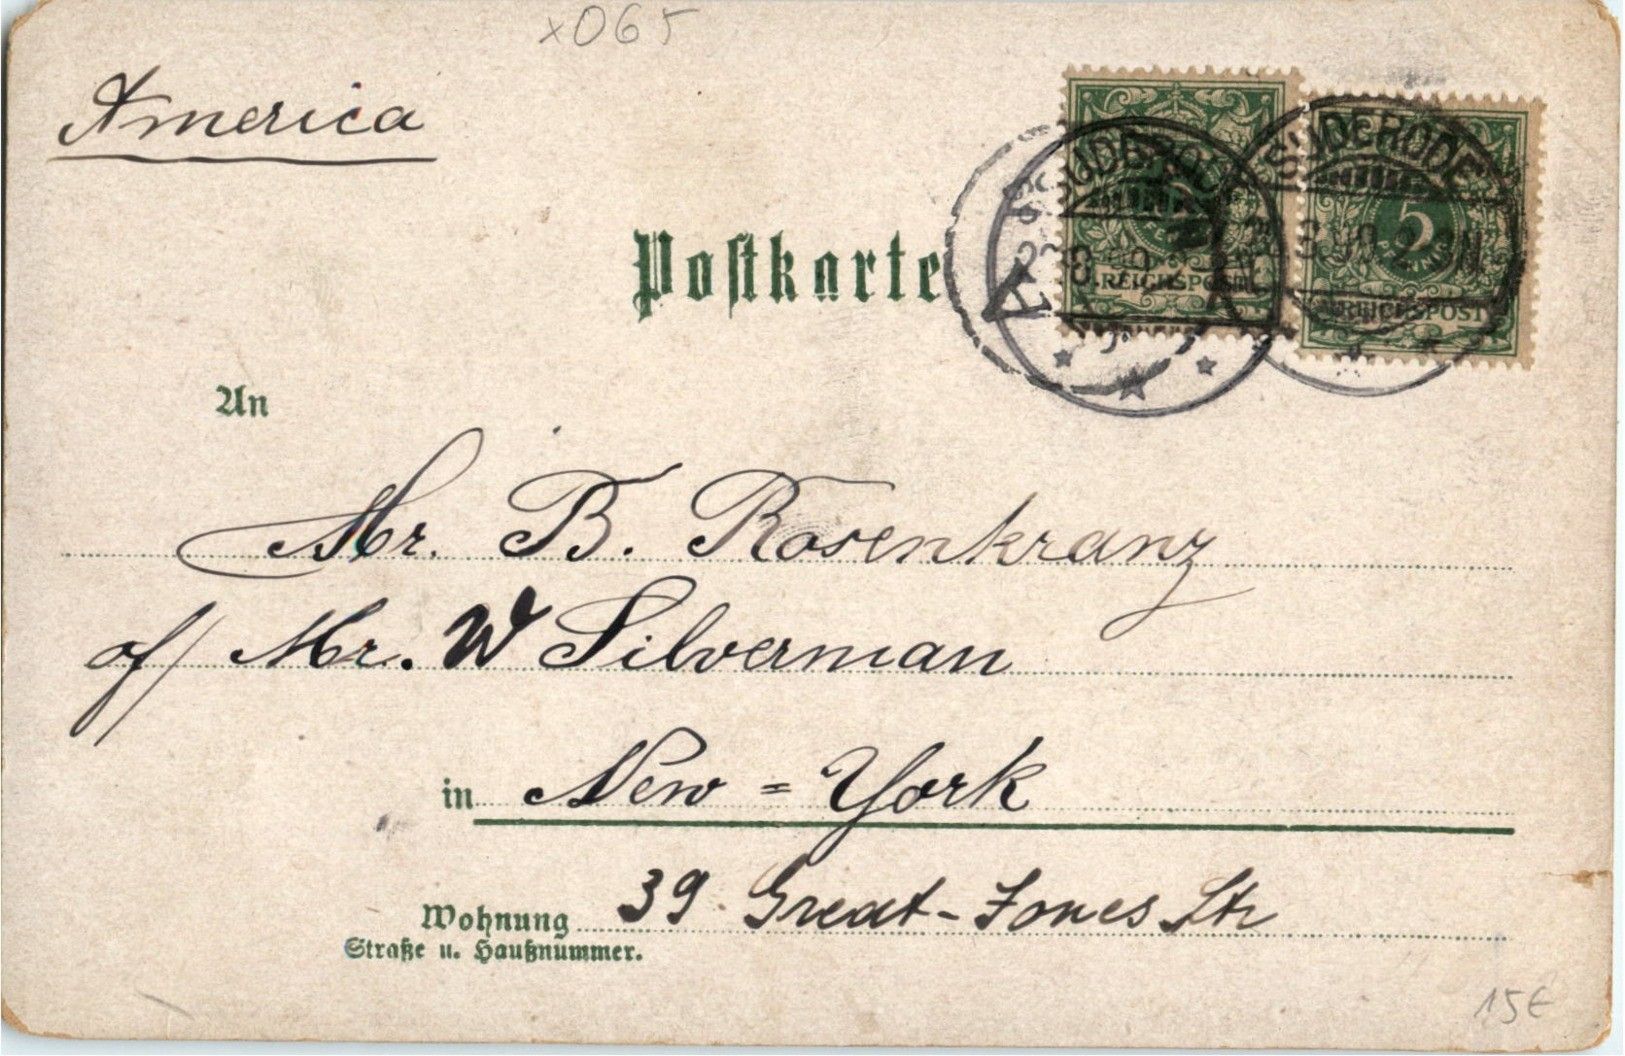 x065
America
Postkarte
SUDERODE
SUDERODE
5
REICHSPOST
REICHSPOST
An
Mr. B. Rosenkranz
of/ Mr. W Silverman
in New=York
39 Great-Jones Str
Wohnung
Straße u. Haußnummer.
15€